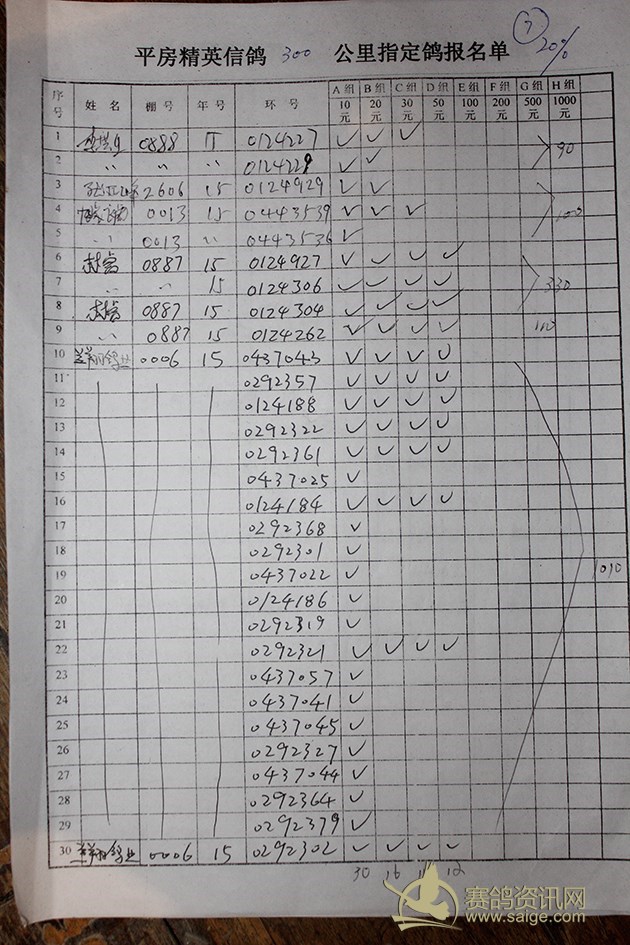 ⑦ 20%
平房精英信鸽 300 公里指定鸽报名单
序号 姓名 棚号 年号 环号 A组10元 B组20元 C组30元 D组50元 E组100元 F组200元 G组500元 H组1000元
1 0888 15 0124227 ✓ ✓ ✓ 90
2 〃 〃 〃 0124229 ✓ ✓
3 2606 15 0124929 ✓ ✓
4 0013 15 0443539 ✓ ✓ ✓ 100
5 〃 0013 〃 0443536 ✓
6 0887 15 0124927 ✓ ✓ ✓ ✓
7 〃 〃 15 0124306 ✓ ✓ ✓ ✓ 330
8 0887 15 0124304 ✓ ✓ ✓ ✓
9 〃 0887 15 0124262 ✓ ✓ ✓ ✓ 110
10 0006 15 0437043 ✓ ✓ ✓ ✓
11 0292357 ✓ ✓ ✓ ✓
12 0124188 ✓ ✓ ✓ ✓
13 0292322 ✓ ✓ ✓ ✓
14 0292361 ✓ ✓ ✓ ✓
15 0437025 ✓
16 0124184 ✓ ✓ ✓ ✓
17 0292368 ✓
18 0292301 ✓
19 0437022 ✓ 1010
20 0124186 ✓
21 0292319 ✓
22 0292321 ✓ ✓ ✓ ✓
23 0437057 ✓
24 0437041 ✓
25 0437045 ✓
26 0292327 ✓
27 0437044 ✓
28 0292364 ✓
29 0292379 ✓
30 0006 15 0292302 ✓ ✓ ✓ ✓
30 16 12
赛鸽资讯网
www.saige.com